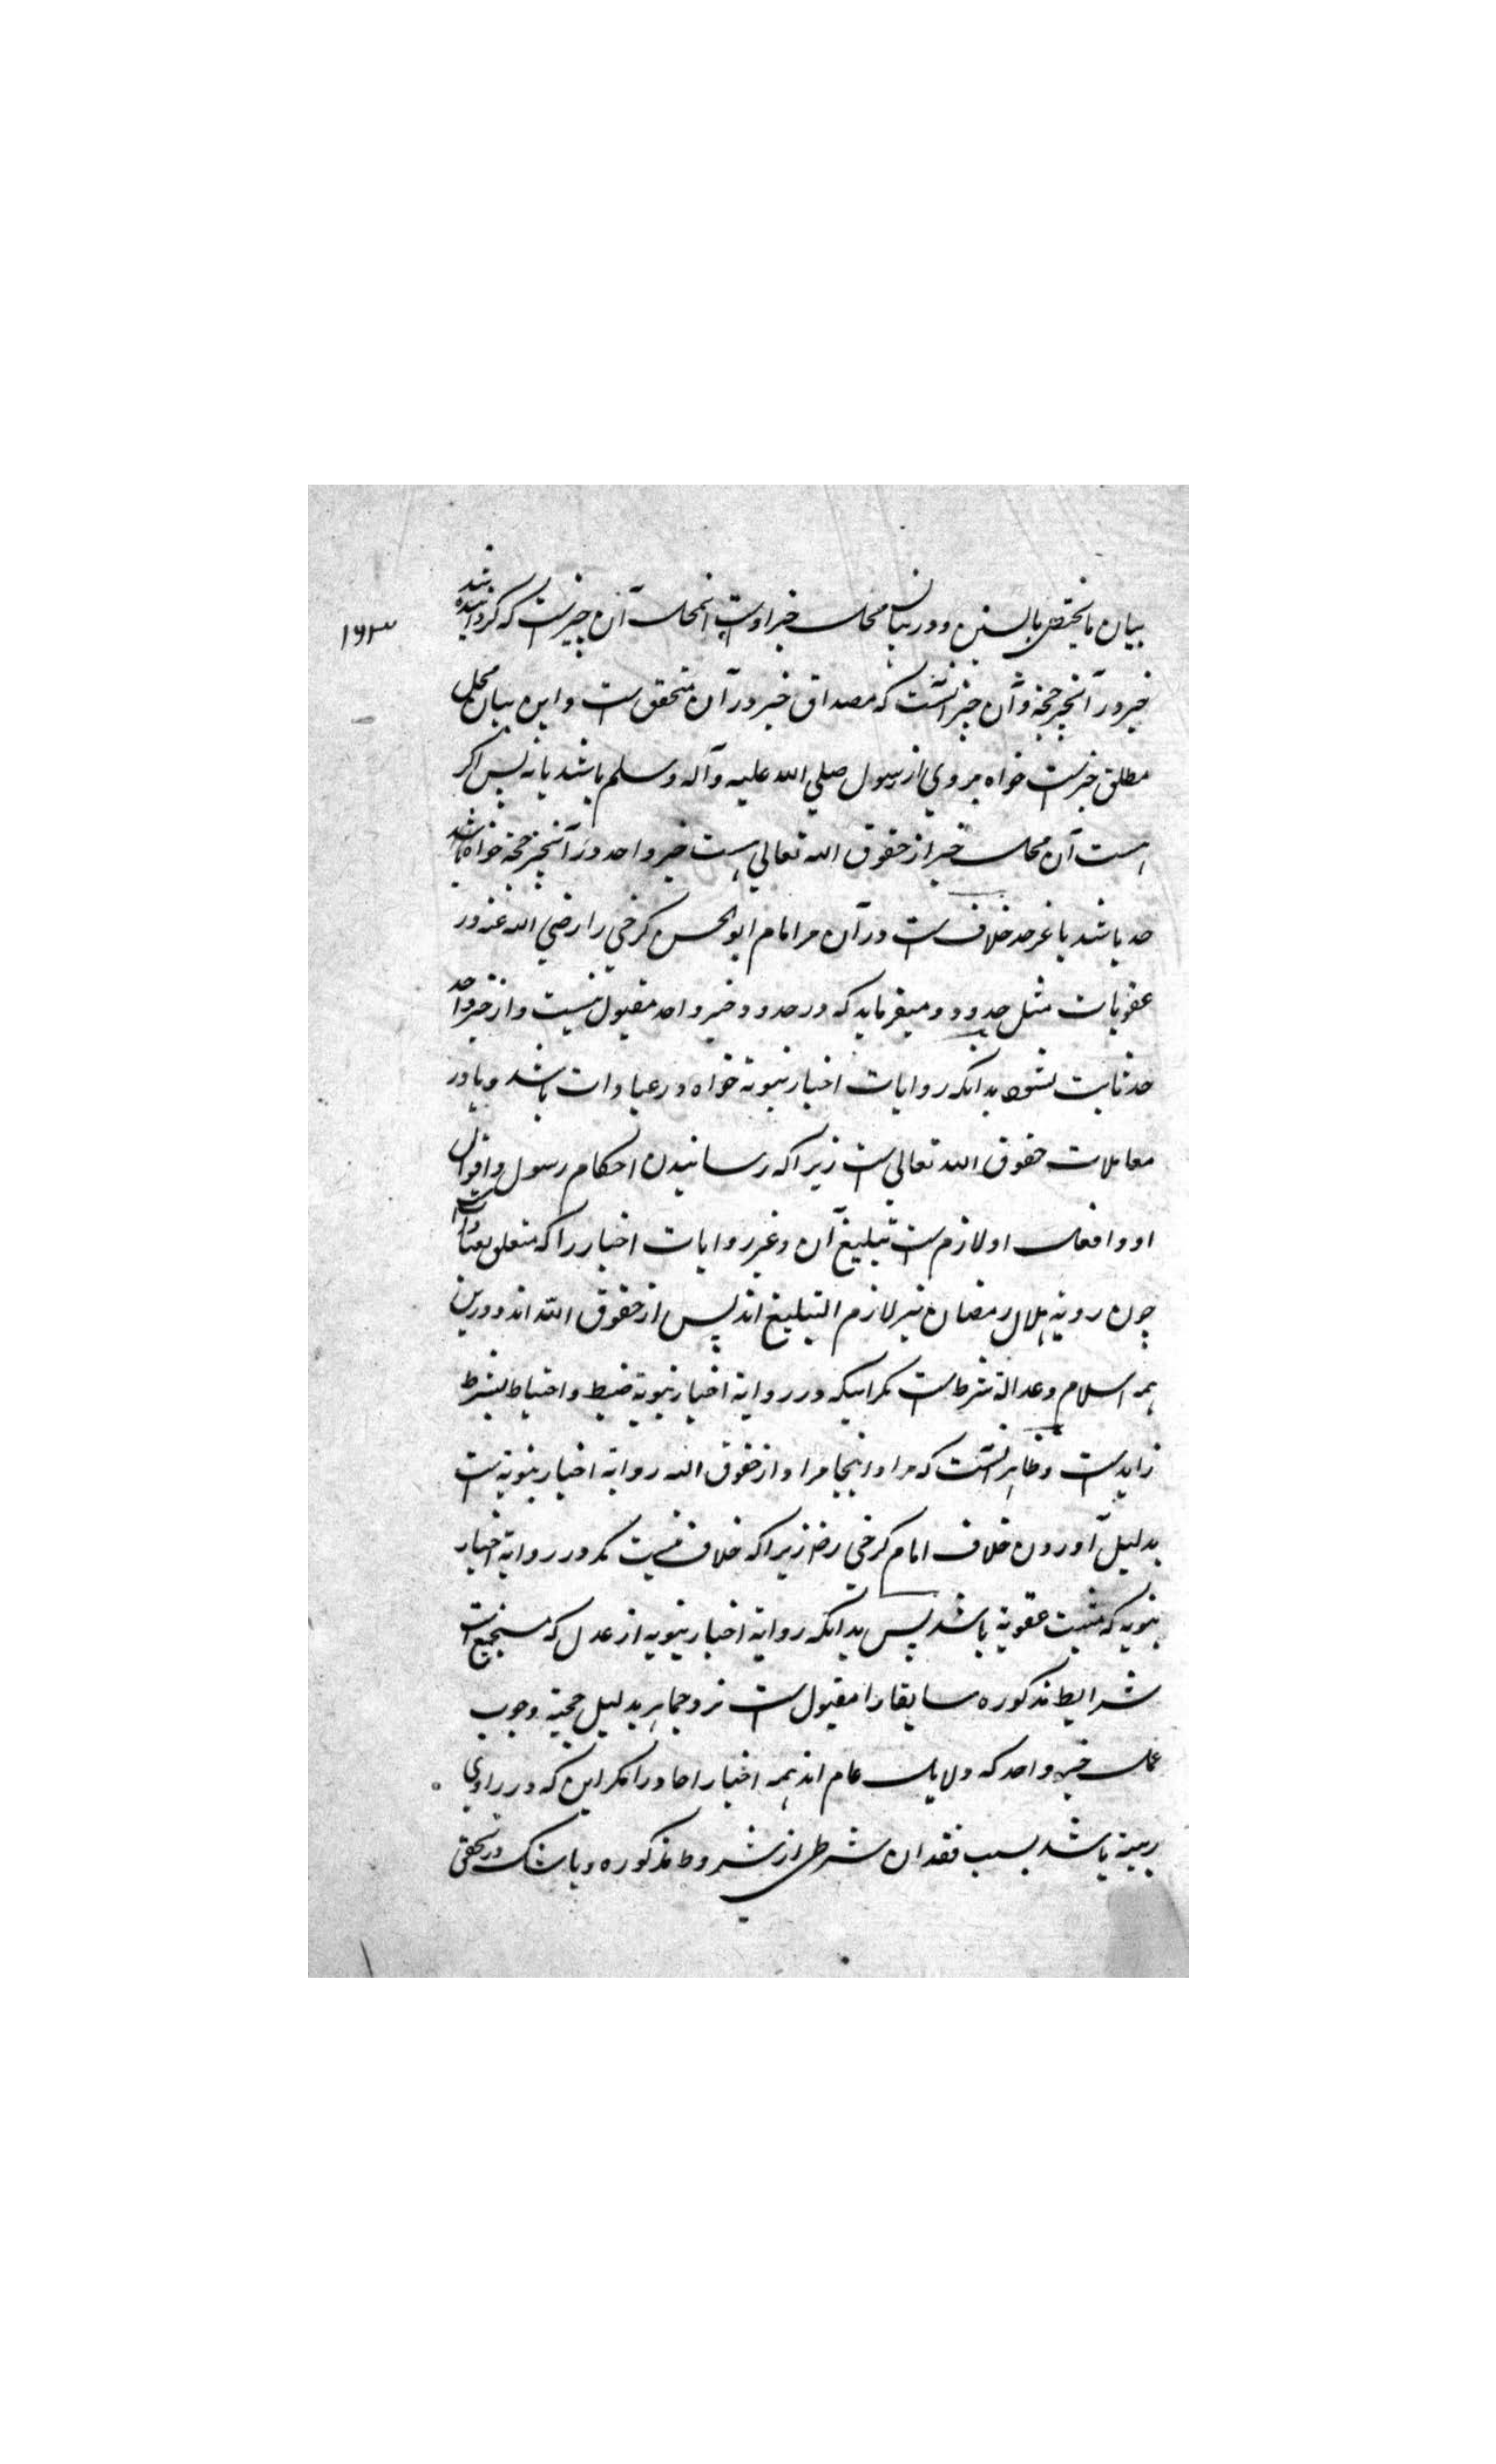 ۱۶۳
بیان ما یختص بالسنن و در بیان محل خبر اوست انمحل آن چیزیست که گردانیده شد
خبر در آنچیز حجة و آن چیز آنست که مصداق خبر در آن متحقق است و این بیان محل
مطلق خبر است خواه مروی از رسول صلی الله علیه وآله وسلم باشد یا نه پس اگر
است آن محل خبر از حقوق الله تعالی هست خبر واحد در آنچیز حجة خواه باشد
حد باشد یا غیر حد خلاف است در آن مر امام ابوالحسن کرخی را رضی الله عنه در
عقوبات مثل حدود و میفرماید که در حدود خبر واحد مقبول نیست و از خبر واحد
حد ثابت نشود بدانکه روایات اخبار نبویة خواه در عبادات باشد و یا در
معاملات حقوق الله تعالی است زیرا که رسانیدن احکام رسول و اقوال
او و افعال او لازم است تبلیغ آن و غیر روایات اخبار را که متعلق بعبادات
چون رویة هلال رمضان نیز لازم التبلیغ اند پس از حقوق الله اند و درین
همه اسلام و عدالة شرط است مگر اینکه در روایة اخبار نبویة ضبط و احتیاط بشرط
زاید است و ظاهر آنست که مراد اینجا مراد از حقوق الله روایة اخبار نبویة است
بدلیل آوردن خلاف امام کرخی رض زیرا که خلاف نیست مگر در روایة اخبار
نبویه که مثبت عقوبة باشد پس بدانکه روایة اخبار نبویه از عدل که مستجمع است
شرایط مذکوره سابقا را مقبول است نزد جماهیر بدلیل حجیة وجوب
عمل خبر واحد که دلایل عام اند همه اخبار احاد را مگر این که در راوی
ریبة باشد بسبب فقدان شرطی از شروط مذکوره و یا شک در تحقق